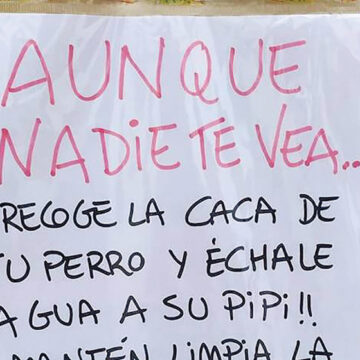 AUNQUE
NADIE TE VEA...
RECOGE LA CACA DE
TU PERRO Y ÉCHALE
AGUA A SU PIPI!!
MANTÉN LIMPIA LA